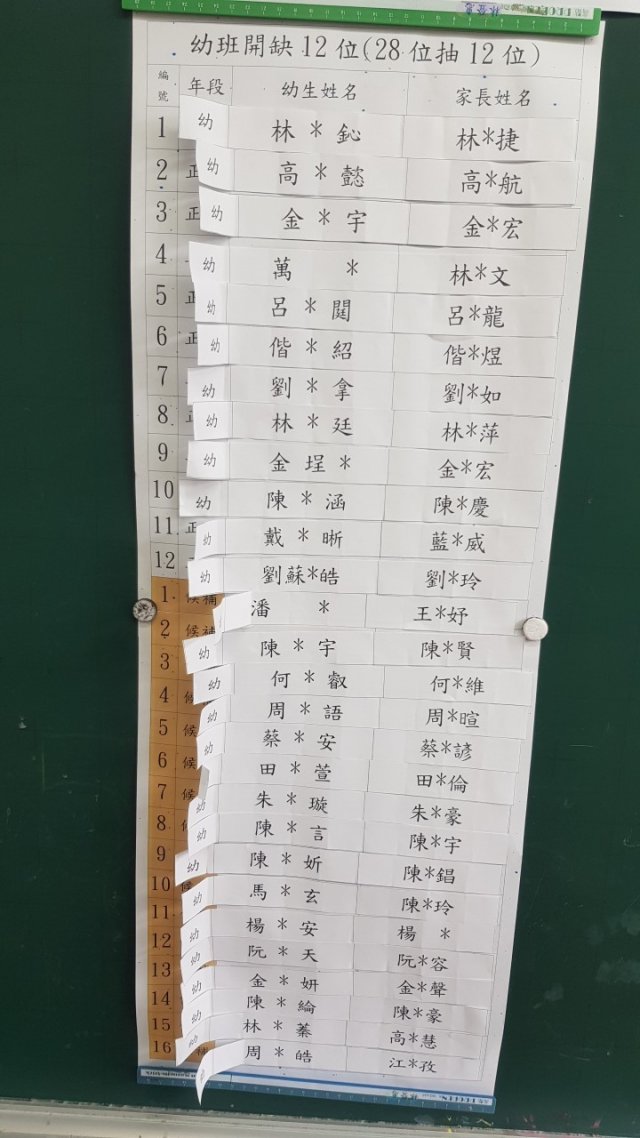 幼班開缺12位(28位抽12位)
編號 年段 幼生姓名 家長姓名
1 幼 林*鈊 林*捷
2 正 幼 高*懿 高*航
3 正 幼 金*宇 金*宏
4 幼 萬* 林*文
5 正 幼 呂*閮 呂*龍
6 正 幼 偕*紹 偕*煜
7 幼 劉*拿 劉*如
8 正 幼 林*廷 林*萍
9 幼 金埕* 金*宏
10 幼 陳*涵 陳*慶
11 正 幼 戴*晰 藍*威
12 幼 劉蘇*皓 劉*玲
1 候補 潘* 王*妤
2 候補 幼 陳*宇 陳*賢
3 幼 何*叡 何*維
4 候 幼 周*語 周*暄
5 候 幼 蔡*安 蔡*諺
6 候 田*萱 田*倫
7 候 幼 朱*璇 朱*豪
8 候 幼 陳*言 陳*宇
9 幼 陳*妡 陳*錩
10 候 幼 馬*玄 陳*玲
11 幼 楊*安 楊*
12 幼 阮*天 阮*容
13 幼 金*妍 金*聲
14 幼 陳*綸 陳*豪
15 幼 林*蓁 高*慧
16 周*皓 江*孜